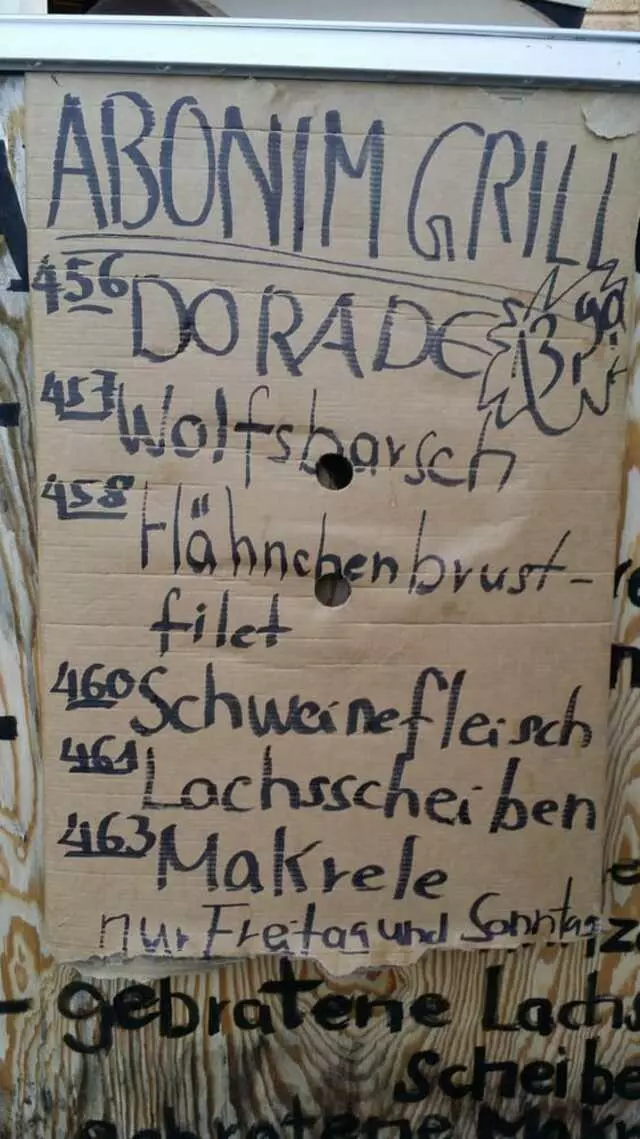 ABONIM GRILL
456 DORADE
457 Wolfsbarsch
458 Hähnchenbrust-
filet
460 Schweinefleisch
461 Lachsscheiben
463 Makrele
nur Freitag und Sonntag
- gebratene Lachs
Scheibe
gebratene Makr